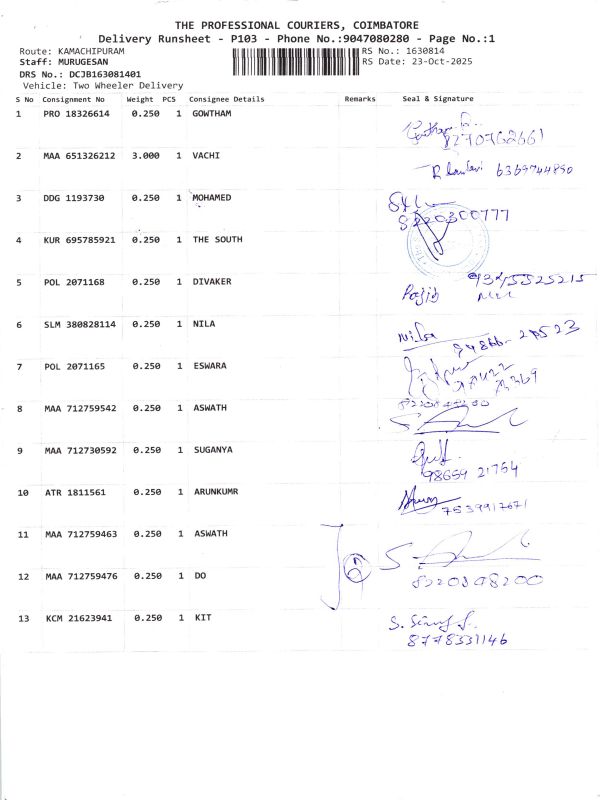 THE PROFESSIONAL COURIERS, COIMBATORE
Delivery Runsheet - P103 - Phone No.:9047080280 - Page No.:1
Route: KAMACHIPURAM RS No.: 1630814
Staff: MURUGESAN RS Date: 23-Oct-2025
DRS No.: DCJB163081401
Vehicle: Two Wheeler Delivery
S No Consignment No Weight PCS Consignee Details Remarks Seal & Signature
1 PRO 18326614 0.250 1 GOWTHAM
8270762661
2 MAA 651326212 3.000 1 VACHI
6369744890
3 DDG 1193730 0.250 1 MOHAMED
8220300777
4 KUR 695785921 0.250 1 THE SOUTH
5 POL 2071168 0.250 1 DIVAKER
9345525215
6 SLM 380828114 0.250 1 NILA
Nila
7 POL 2071165 0.250 1 ESWARA
8 MAA 712759542 0.250 1 ASWATH
9 MAA 712730592 0.250 1 SUGANYA
98659 21754
10 ATR 1811561 0.250 1 ARUNKUMR
7539917671
11 MAA 712759463 0.250 1 ASWATH
12 MAA 712759476 0.250 1 DO
8220398200
13 KCM 21623941 0.250 1 KIT
8778331146